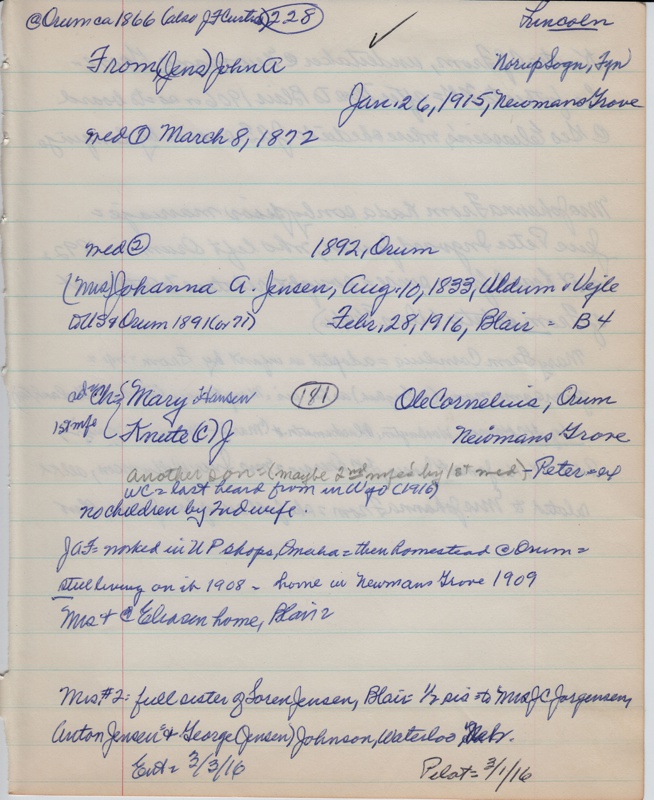 @ Orum ca 1866 (also J F Curtis) 228 Lincoln
From (Jens) John A Norup Sogn, Fyn
Jan. 26, 1915, Newmans Grove
med ① March 8, 1872
med ② 1892, Orum
(Mrs) Johanna A. Jensen, Aug. 10, 1833, Uldum, Vejle
to US & Orum 1891 (or 71) Febr. 28, 1916, Blair = B4
ad. Ch = Mary Hansen 181 Ole Cornelius, Orum
1st mge Knute (C) J Newmans Grove
Another son = (maybe 2nd by 1st med) - Peter = ex
WC = last heard from in (1916)
no children by 2nd wife.
JAF = worked in UP shops, Omaha = then homestead @ Orum =
still living on it 1908 - home in Newmans Grove 1909
Mrs + @ Eliasen home, Blair
Mrs #2 = full sister of Soren Jensen, Blair = 1/2 sis = to Mrs J C Jorgensen,
Anton Jensen & George (Jensen) Johnson, Waterloo, Nebr.
Ent = 3/3/16 Pilot = 3/1/16